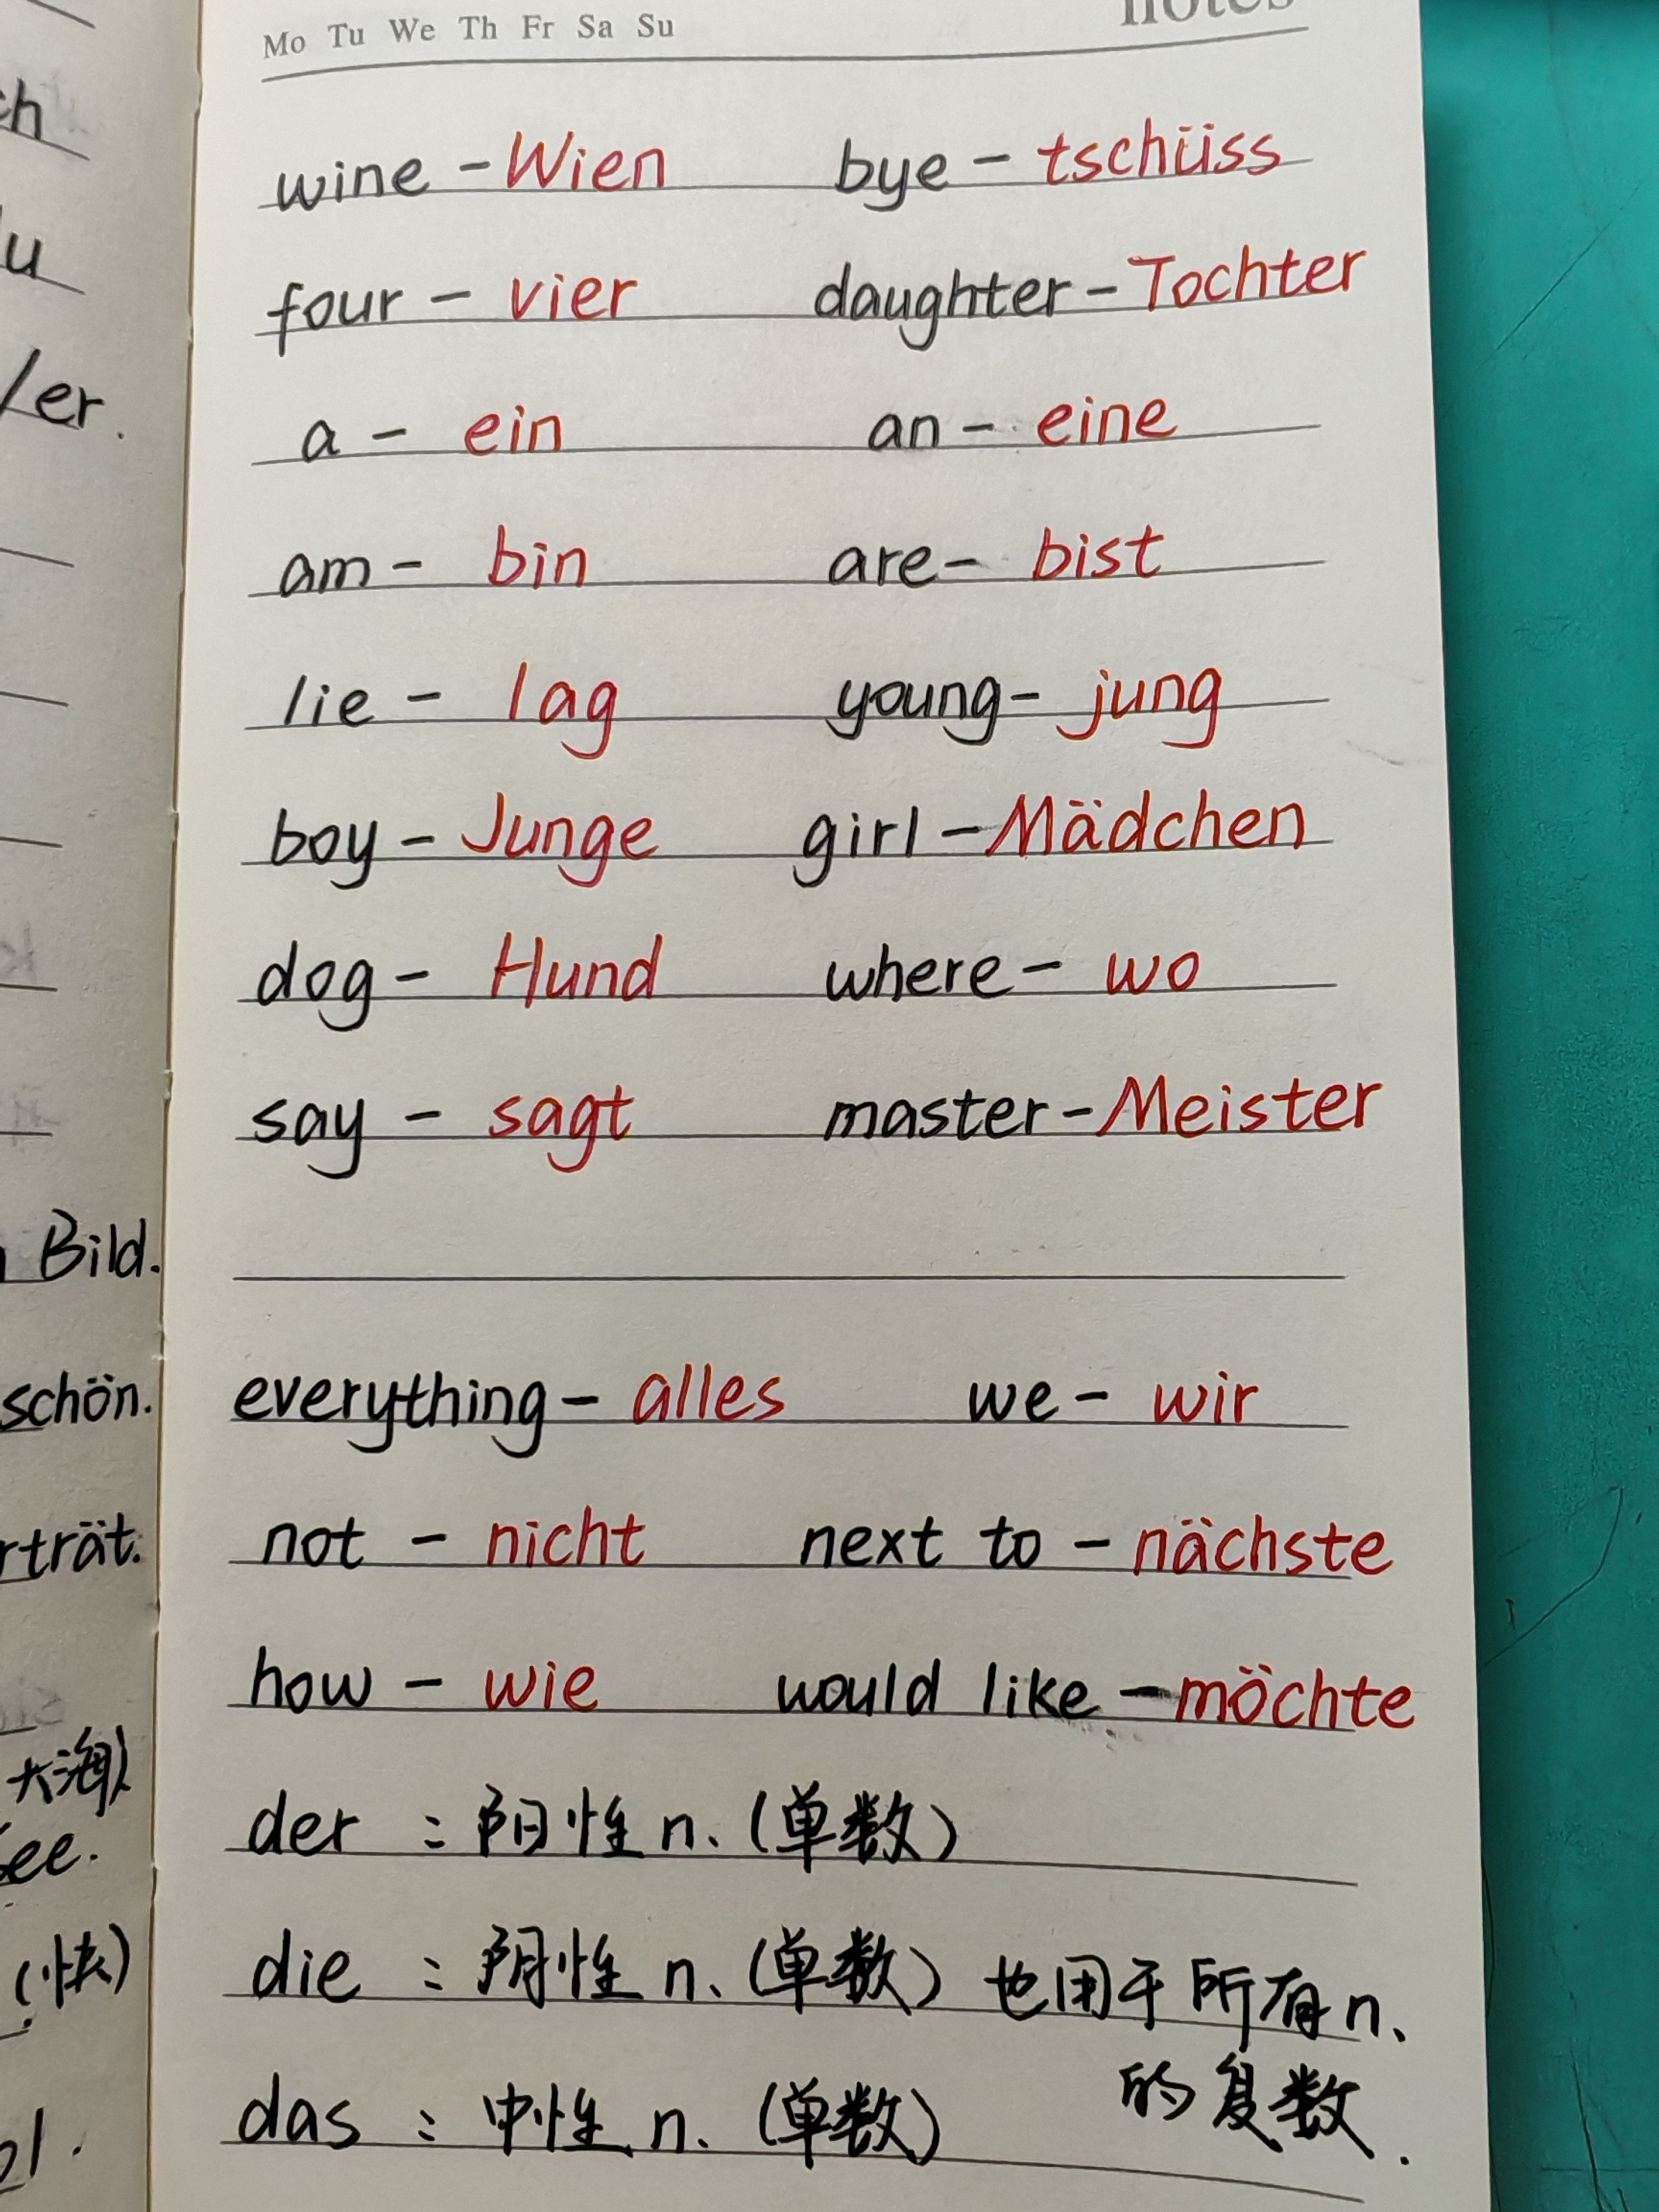 Mo Tu We Th Fr Sa Su notes
wine - Wien bye - tschüss
four - vier daughter - Tochter
a - ein an - eine
am - bin are - bist
lie - lag young - jung
boy - Junge girl - Mädchen
dog - Hund where - wo
say - sagt master - Meister
everything - alles we - wir
not - nicht next to - nächste
how - wie would like - möchte
der : 阳性 n. (单数)
die : 阴性 n. (单数) 也用于所有 n.
的复数.
das : 中性 n. (单数)
/er.
Bild.
schön.
大海)
(快)